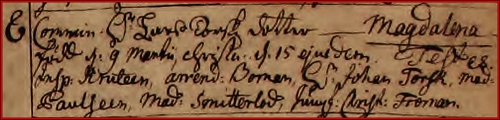 E Commin: Hr Lars Torsk dotter Magdalena
född d: 9 Martii, christn: d. 15 ejusdem. Testes
Insp: Kruteen, arrend: Boman, Hr Johan Torsk, mad:
Paulseen, Mad: Smitterlod, Jungf: Christ: Froman.